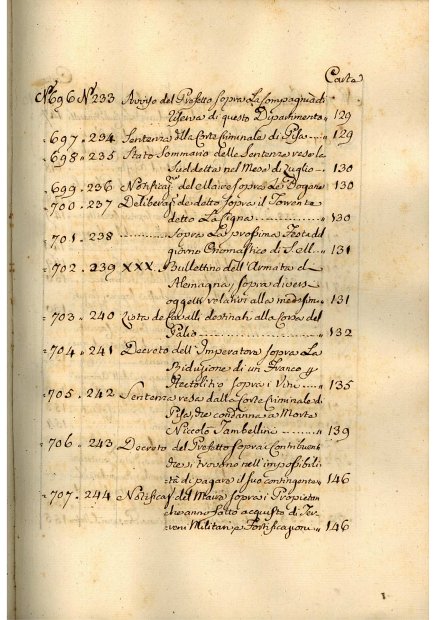 Carte
N.º 696 N.º 233 Avviso del Prefetto sopra La Compagnia di
Riserva di questo Dipartimento " 129
" 697 . 234 Sentenza della Corte Criminale di Pisa " 129
" 698 " 235 Stato Sommario delle Sentenze rese la
Suddetta nel Mese di Luglio " 130
" 699 . 236 del Maire sopra Le Dogane 130
" 700 . 237 detto sopra il Torrente
detto La Cigna " 130
" 701 . 238 Sopra La prossima Festa del
giorno Onomastico di S. M. " 131
" 702 . 239 XXX. Bullettino dell'Armata d'
Alemagna, sopra diversi
oggetti relativi alla medesima " 131
" 703 " 240 Lista de Cavalli destinati alla Corsa del
Palio " 132
" 704 " 241 Decreto dell'Imperatore sopra La
Riduzione di un Franco p
Hectolitro sopra i Vini " 135
" 705 . 242 Sentenza resa dalla Corte Criminale di
Pisa, che condanna a Morte
Niccolo Tambellini " 139
" 706 . 243 Decreto del Prefetto sopra i Contribuenti
che si trovono nell'impossibili
tà di pagare il suo contingente " 146
" 707 . 244 del Maire sopra i Propietari
che anno fatto acquisto di Ter
reni Militari e Fortificazioni " 146
1